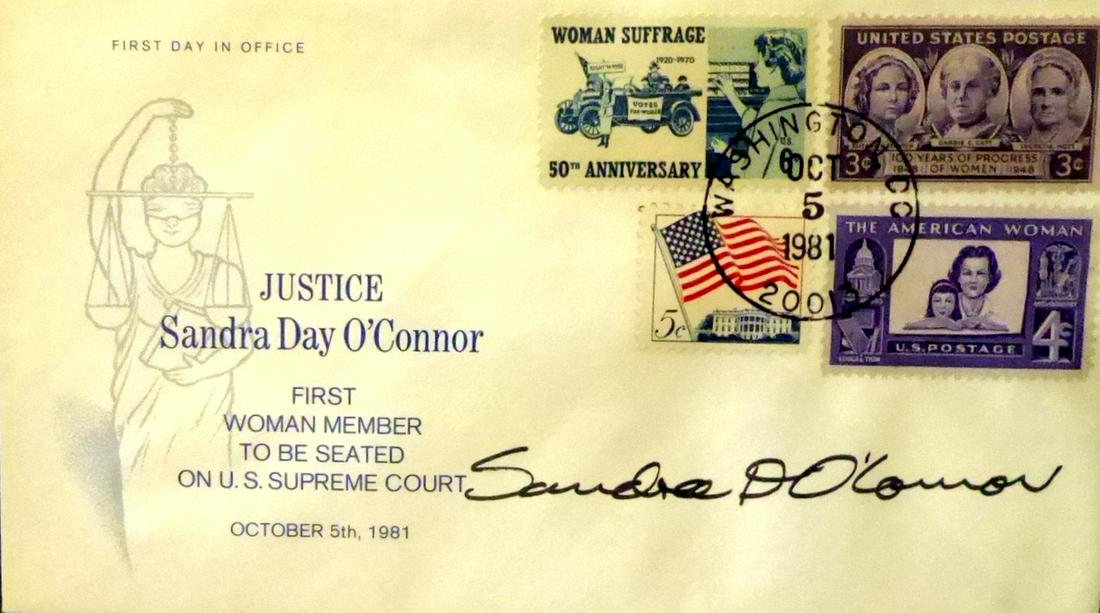 FIRST DAY IN OFFICE
JUSTICE
Sandra Day O'Connor
FIRST
WOMAN MEMBER
TO BE SEATED
ON U.S. SUPREME COURT
OCTOBER 5th, 1981
Sandra D O'Connor
WOMAN SUFFRAGE
1920-1970
VOTES
FOR WOMEN
U.S.
6c
50TH ANNIVERSARY
UNITED STATES POSTAGE
CARRIE C. CATT
LUCRETIA MOTT
3¢
100 YEARS OF PROGRESS
1848 OF WOMEN 1948
3¢
WASHINGTON, DC
OCT
5
1981
5c
THE AMERICAN WOMAN
EDUCATION
U.S. POSTAGE
4¢